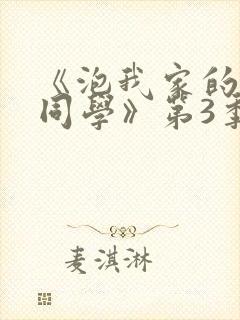 《泡我家的
同學》第3季
麦淇淋